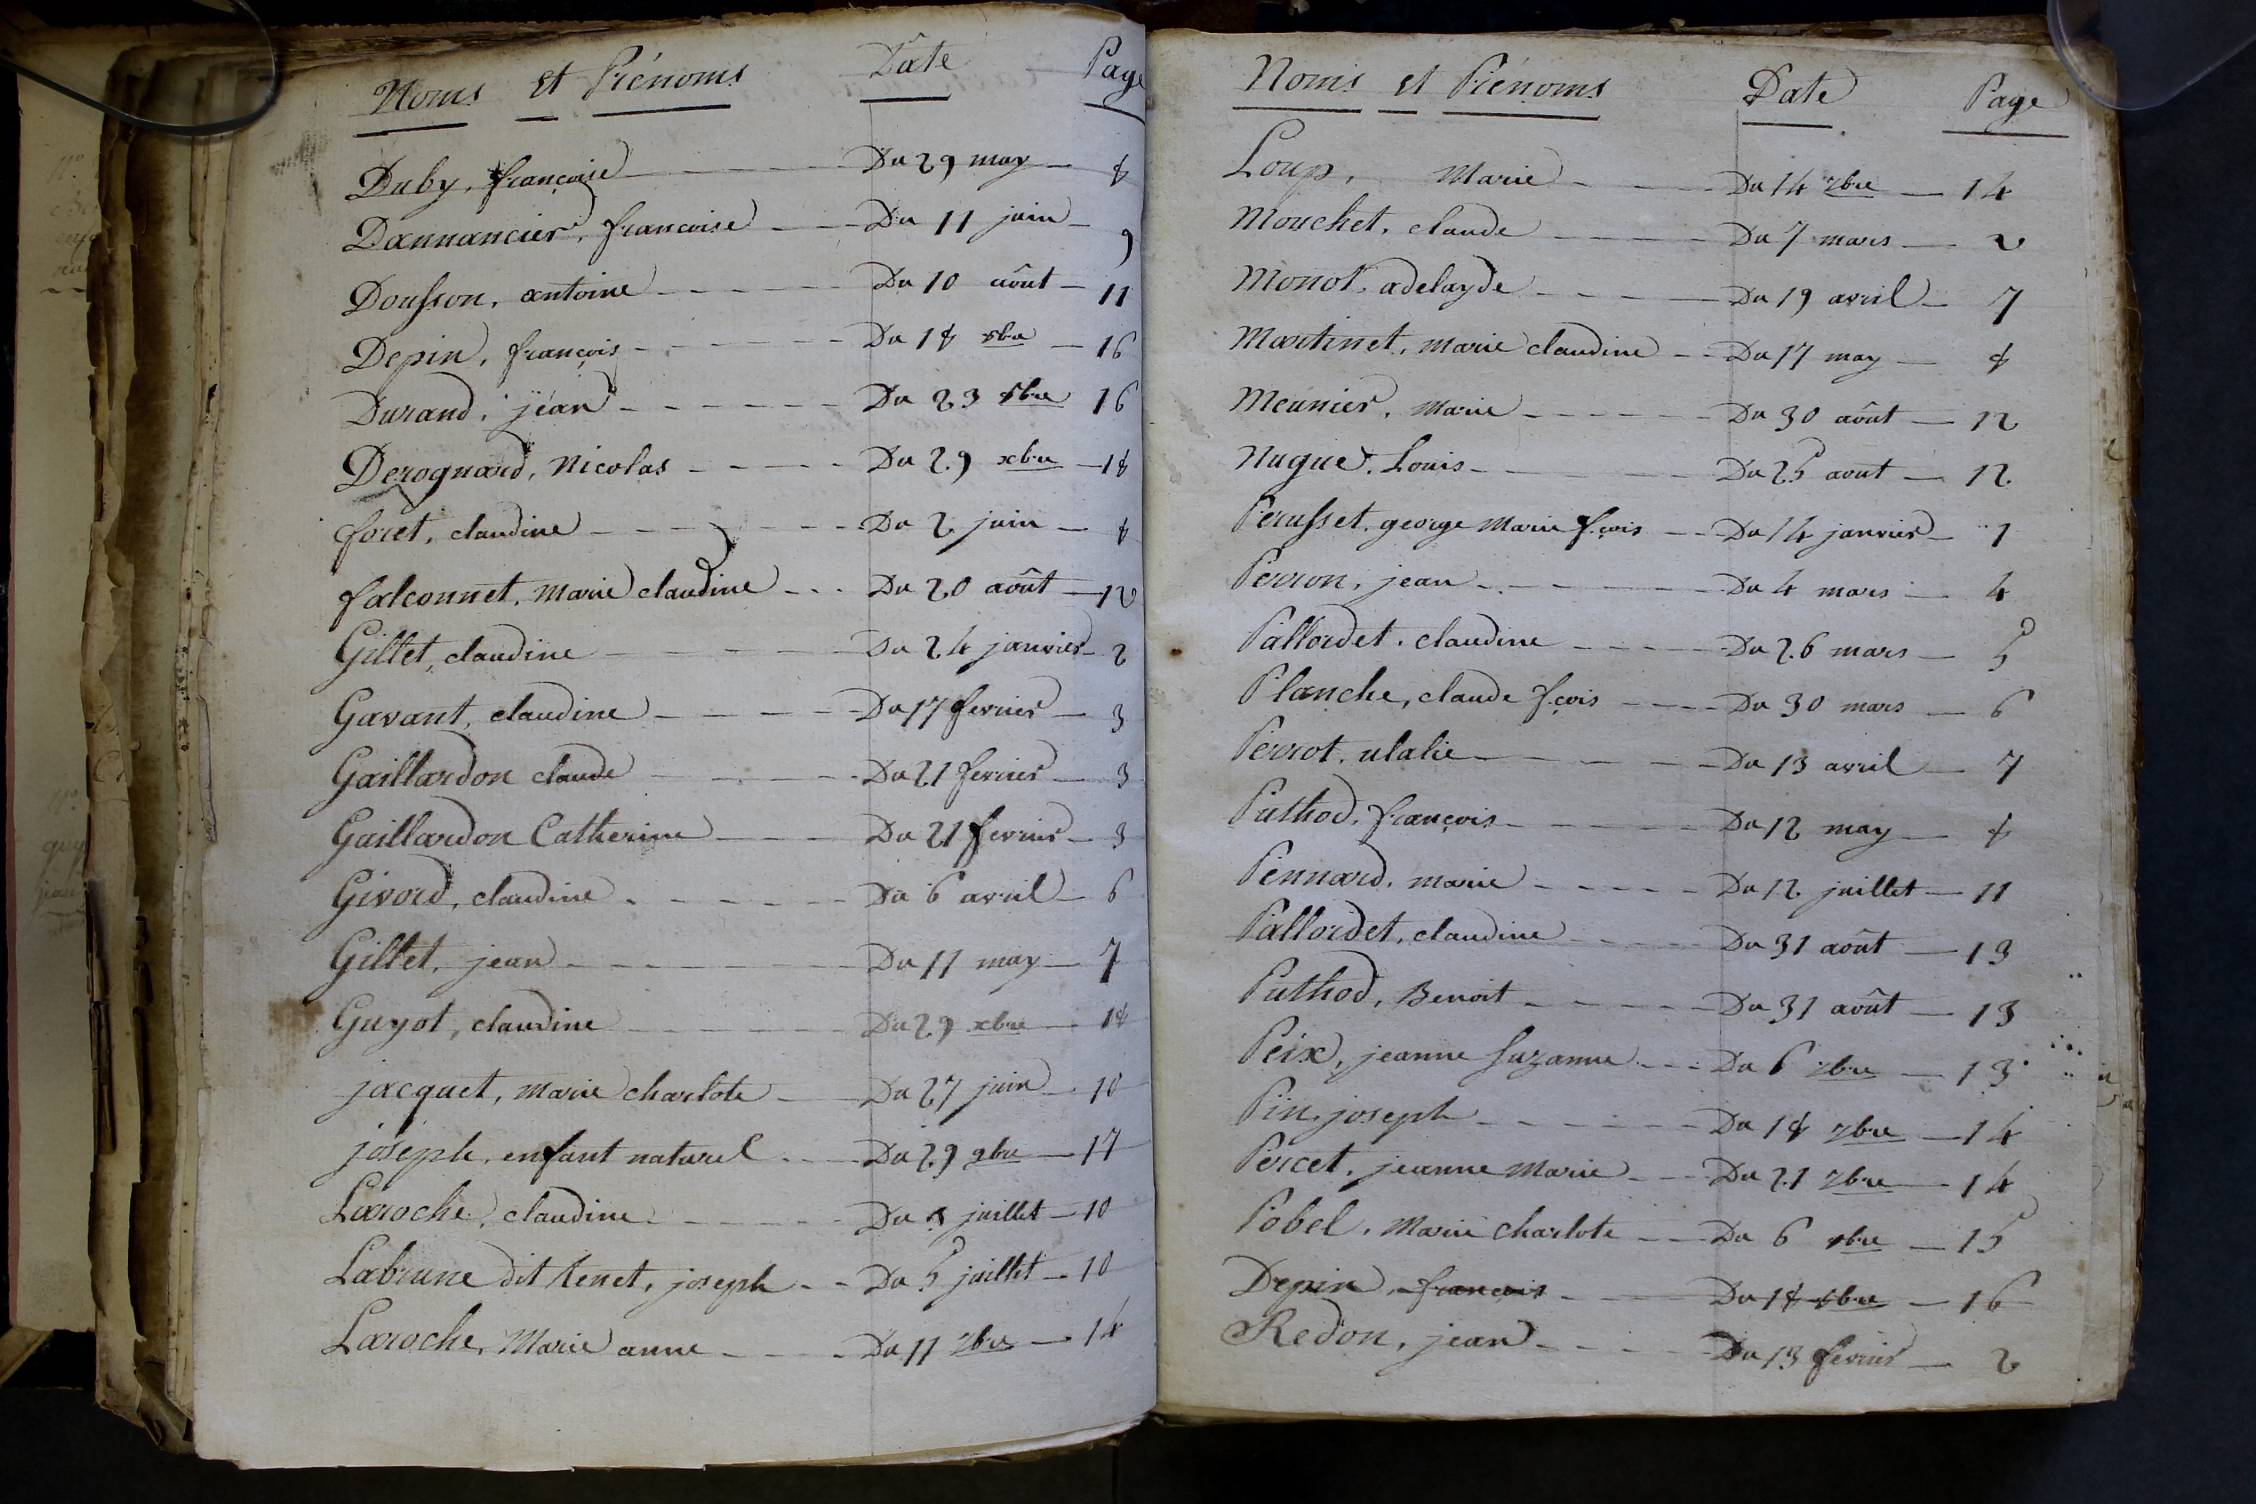 Noms et Prénoms Dâte Page
Duby, françoise Du 29 may 8
Dannancier, francoise Du 11 juin 9
Dousson, antoine Du 10 aôut 11
Depin, françois Du 18 8bre 16
Durand, jean Du 23 8bre 16
Derognard, Nicolas Du 29 xbre 18
foret, claudine Du 2 juin 8
falconnet, Marie claudine Du 20 août 12
Gillet, claudine Du 24 janvier 2
Gavant, claudine Du 17 fevrier 3
Gaillardon claude Du 21 fevrier 3
Gaillardon Catherine Du 21 fevrier 3
Givord, claudine Du 6 avril 6
Gillet, jean Du 11 may 7
Guyot, claudine Du 29 xbre 18
jacquet, Marie charlote Du 27 juin 10
joseph, enfant naturel Du 29 9bre 17
Laroche, claudine Du juillet 10
Labrune dit tenet, joseph Du 5 juillet 10
Laroche, Marie anne Du 11 7bre 14
Noms et Prénoms Date Page
Loup, Marie Du 14 7bre 14
Mouchet, claude Du 7 mars 2
Monot, adelayde Du 19 avril 7
Martinet, marie claudine Du 17 may 8
Meunier, Marie Du 30 aôut 12
Nugue, Louis Du 25 aout 12
Perusset, george Marie fçois Du 14 janvier 1
Perron, jean Du 4 mars 4
Pallordet, claudine Du 26 mars 5
Planche, claude fçois Du 30 mars 6
Perrot, ulalie Du 13 avril 7
Puthod, françois Du 12 may 8
Pennard, marie Du 12 juillet 11
Pallordet, claudine Du 31 août 13
Puthod, Benoit Du 31 août 13
Peix, jeanne Suzanne Du 6 7bre 13
Pin, joseph Du 18 7bre 14
Percet, jeanne Marie Du 21 7bre 14
Pobel, Marie charlote Du 6 8bre 15
Depin, françois Du 18 8bre 16
Redon, jean Du 13 fevrier 2